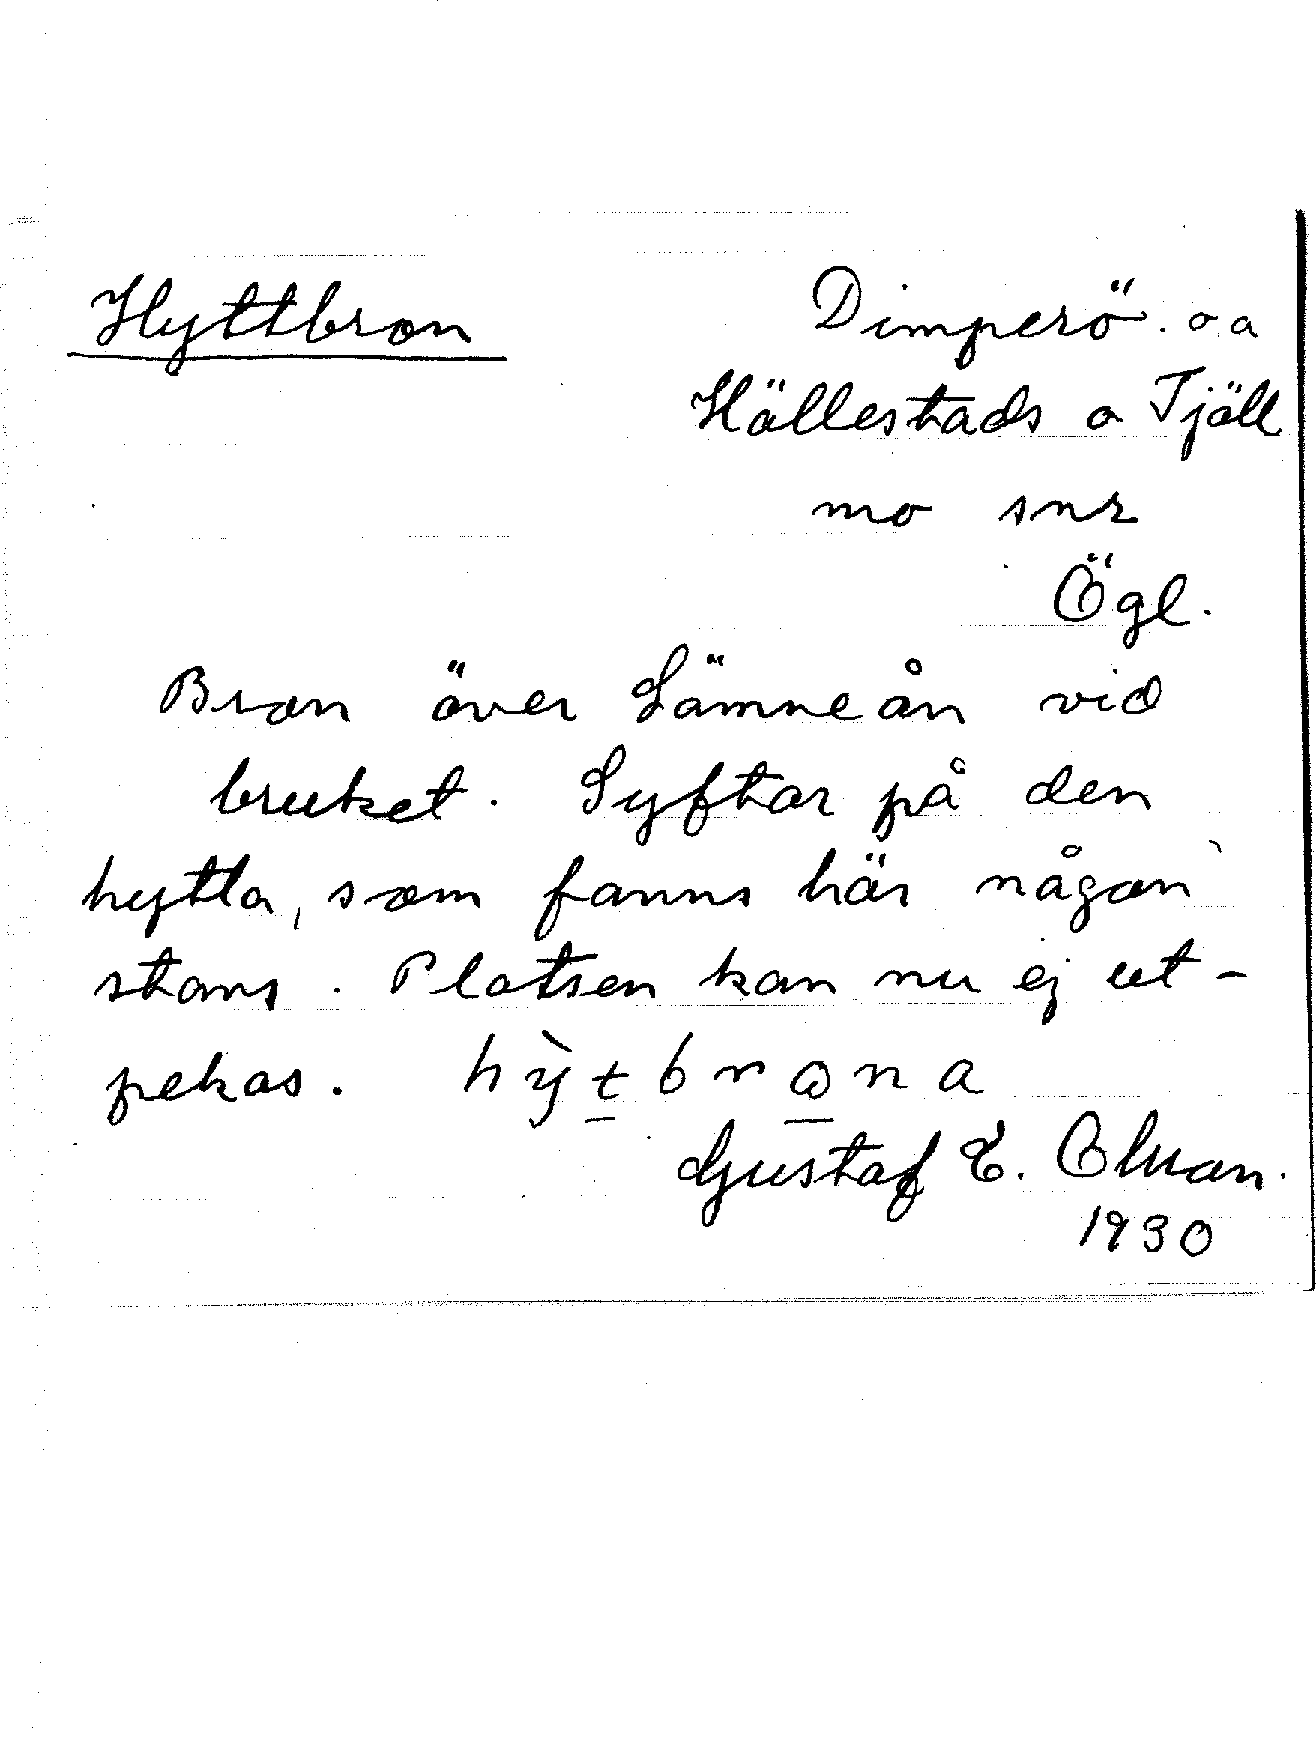 Hyttbron
Dimperö. o a
Hällestads o Tjäll
mo snr
Ögl.
Bron över Sämneån vid
bruket. Syftar på den
hytta, som fanns här någon
stans. Platsen kan nu ej ut-
pekas. hỳt̲brω̲na
Gustaf E.
1930